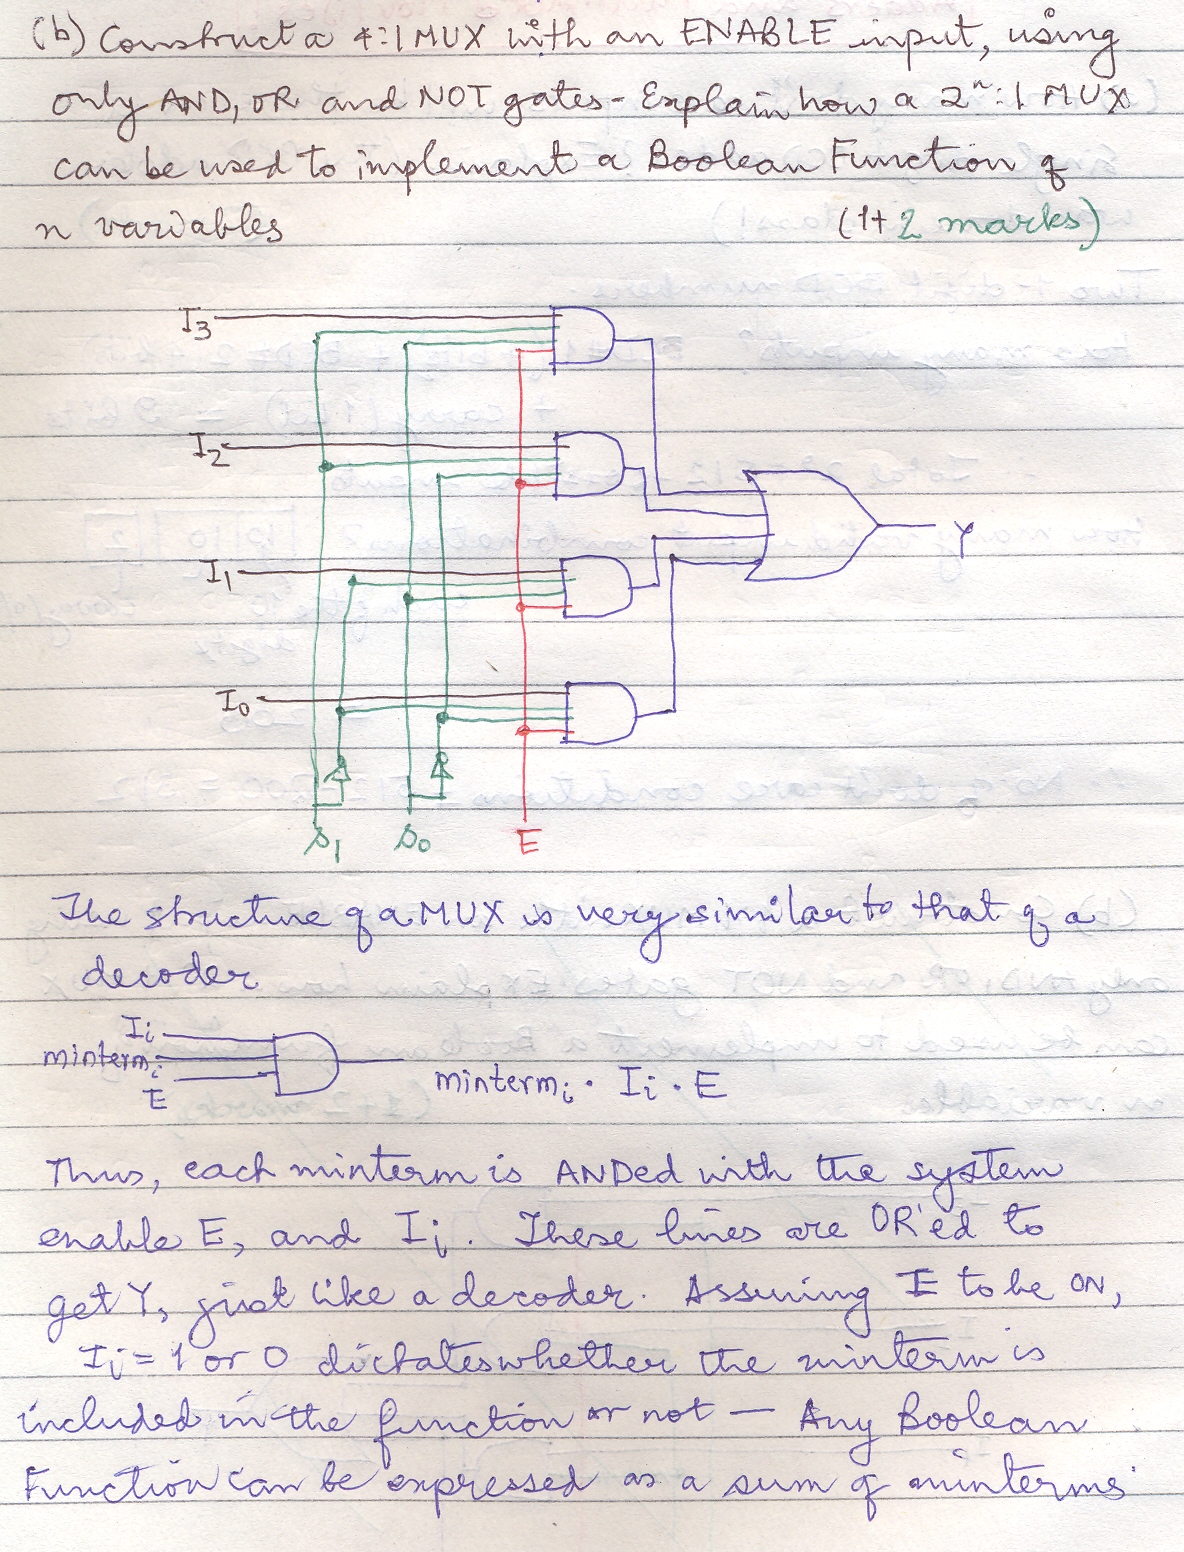 (b) Construct a 4:1 MUX with an ENABLE input, using
only AND, OR and NOT gates - Explain how a 2ⁿ:1 MUX
can be used to implement a Boolean Function of
n variables (1+2 marks)
I3
I2
I1
I0
Y
S1 S0 E
The structure of a MUX is very similar to that of a
decoder
Ii
mintermi
E
mintermi · Ii · E
Thus, each minterm is ANDed with the system
enable E, and Ii. These lines are OR'ed to
get Y, just like a decoder. Assuming E to be ON,
Ii = 1 or 0 dictates whether the minterm is
included in the function or not — Any Boolean
Function can be expressed as a sum of minterms